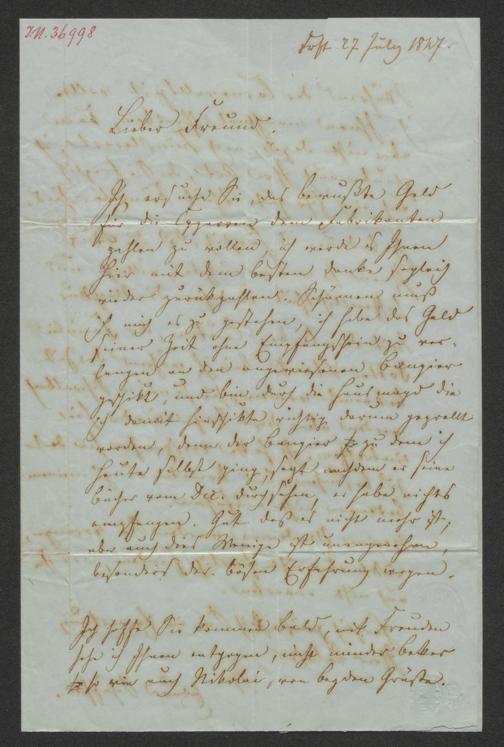 I.N. 36998
Pest 27 July 1847.
Lieber Freund.
Ich ersuche Sie, das bewußte Geld
für die Cygarren dem Fabrikanten
zahlen zu wollen, ich werde es Ihnen
hier mit dem besten Danke sogleich
wieder zurückzahlen. Schämen muß
ich mich es zu gestehen, ich habe das Geld
seiner Zeit ohne Empfangschein zu ver-
langen an den angewiesenen Banquier
geschikt, und bin durch die Hausmagd die
ich damit hinschikte richtig darum geprellt
worden, denn der Banquier zu dem ich
heute selbst ging, sagt nachdem er seine
Bücher vom Dec. durchsehen, er habe nichts
empfangen. Gut daß es nicht mehr ist,
aber auch dies Wenige ist unangenehm,
besonders der bösen Erfahrung wegen.
Ich hoffe Sie kommen bald, mit Freuden
sehe ich Ihnen entgegen, nicht minder
so wie auch Nikolai, von beyden Grüße.